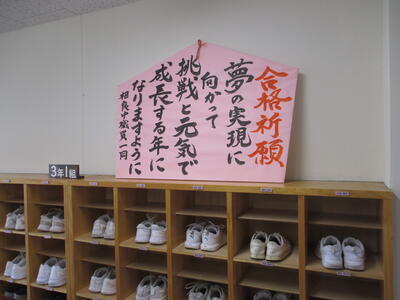 合格祈願
夢の実現に
向かって
挑戦と元気で
成長する年に
なりますように
相良中職員一同
3年1組